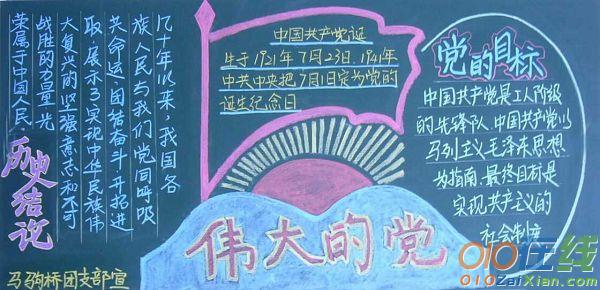 几十年以来,我国各
族人民与我们党同呼吸
共命运,团结奋斗,开拓进
取,展示了实现中华民族伟
大复兴的坚强意志和不可
战胜的力量,光
荣属于中国人民.
历史结论
马驹桥团支部宣
中国共产党诞
生于1921年7月23日.1941年
中共中央把7月1日定为党的
诞生纪念日
伟大的党
党的目标
中国共产党是工人阶级
的先锋队.中国共产党以
马列主义,毛泽东思想
为指南,最终目标是
实现共产主义的
社会制度
010在线
010ZaiXian.com